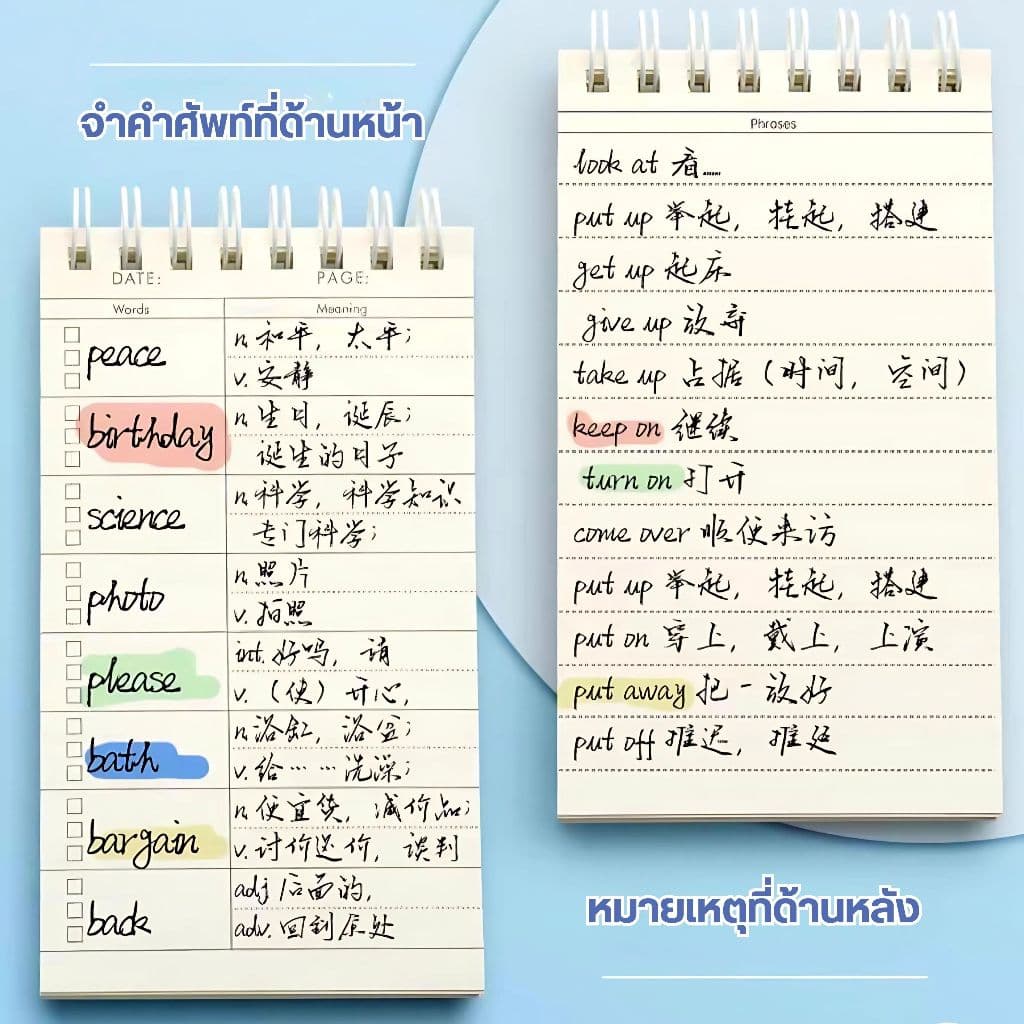 จำคำศัพท์ที่ด้านหน้า
DATE: PAGE:
Words Meaning
peace n.和平，太平；
v.安静
birthday n.生日，诞辰；
诞生的日子
science n.科学，科学知识
专门科学；
photo n.照片
v.拍照
please int.好吗，请
v.（使）开心，
bath n.浴缸，浴盆；
v.给……洗澡；
bargain n.便宜货，减价品；
v.讨价还价，谈判
back adj 后面的，
adv.回到原处
Phrases
look at 看……
put up 举起，挂起，搭建
get up 起床
give up 放弃
take up 占据（时间，空间）
keep on 继续
turn on 打开
come over 顺便来访
put up 举起，挂起，搭建
put on 穿上，戴上，上演
put away 把一放好
put off 推迟，推延
หมายเหตุที่ด้านหลัง